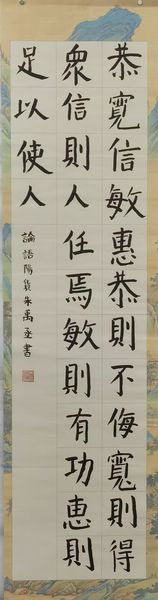 恭寬信敏惠恭則不侮寬則得
眾信則人任焉敏則有功惠則
足以使人
論語陽貨朱禹丞書